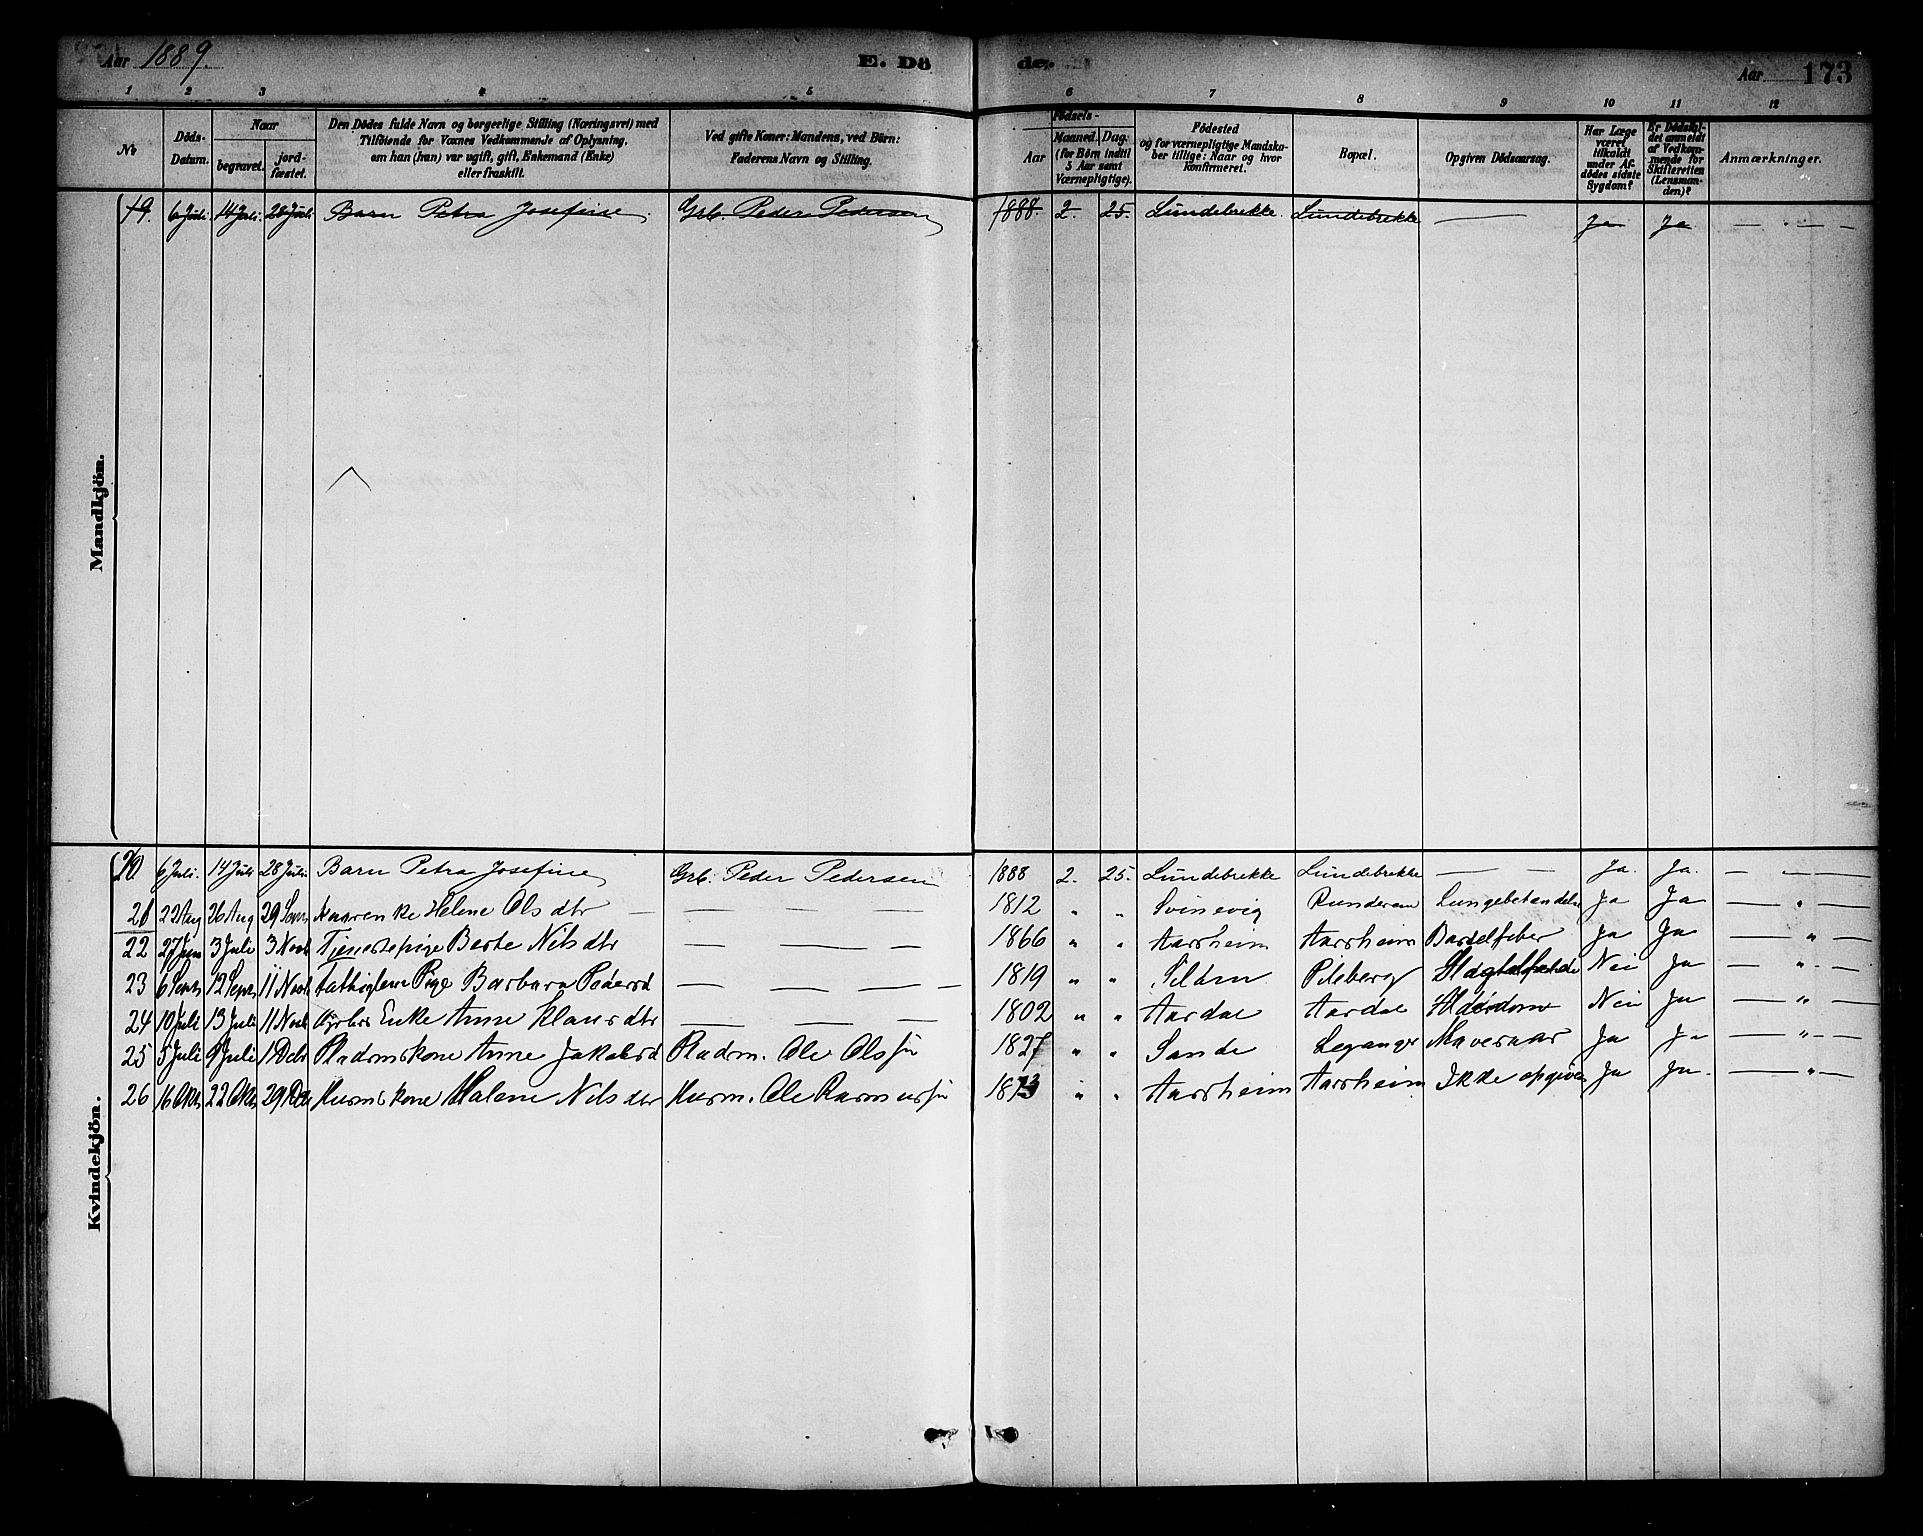 Aar 1889. E. Dö de. Aar 173
1 2 3 4 5 6 7 8 9 10 11 12
No
Döds-Datum.
Naar
begravet. jordfæstet.
Den Dödes fulde Navn og borgerlige Stilling (Næringsvei) med
Tilföiende for Voxnes Vedkommende af Oplysning,
om han (hun) var ugift, gift, Enkemand (Enke)
eller fraskilt.
Ved gifte Koner: Mandens, ved Börn:
Faderens Navn og Stilling.
Födsels-
Aar Maaned. Dag.
(for Börn indtil
5 Aar samt
Værnepligtige).
Födested
og for værnepligtige Mandskaber tillige: Naar og hvor
konfirmeret.
Bopæl.
Opgiven Dödsaarsag.
Har Læge
været
tilkaldt
under Afdödes sidste
Sygdom?
Er Dödsfaldet anmeldt
af Vedkommende for
Skifteretten
(Lensmanden)?
Anmærkninger.
Mandkjön.
19. 6 Juli 14 Juli. 28 Juli Barn Petra Josefine. Grb. Peder Pedersen 1888. 2. 25. Lundebrekke. Lundebrekke — Ja Ja — " — —
Kvindekjön.
20 6 Juli. 14 Juli 28 Juli. Barn Petra Josefine Grb. Peder Pedersen 1888 2. 25. Lundebrekke Lundebrekke — — Ja. Ja. — " — —
21 22 Aug 26 Aug 29 Sept Helene Olsdtr — — — 1812 " " Svinevig Rundereim Lungebetændelse Ja Ja — " —
22 27 Juni 3 Juli 3 Novb Tjenestepige Berte Nilsdtr — — — 1866 " " Aarsheim Aarsheim Barselfeber Ja Ja — " —
23 6 Septr 12 Septr 11 Novb Fattiglem Pige Barbara Pedersd — — — — 1819 " " Silden Pileberg Slagtilfælde Nei Ja — " —
24 10 Juli 13 Juli 11 Novb Enke Anne Klausdtr — — — 1802 " " Aardal Aardal Alderdom Nei Ja — " —
25 5 Juli 9 Juli 1 Debr Pladsmskone Anne Jakobsd Pladsm. Ole Olssøn 1827 " " Sande Leganger Mavesaar Ja Ja — " —
26 16 Oktr 22 Oktr 29 Der Husmskone Malene Nilsdtr Husm. Ole Rasmussøn 1813 " " Aarsheim Aarsheim Ikke opgiven Ja Ja. — " —